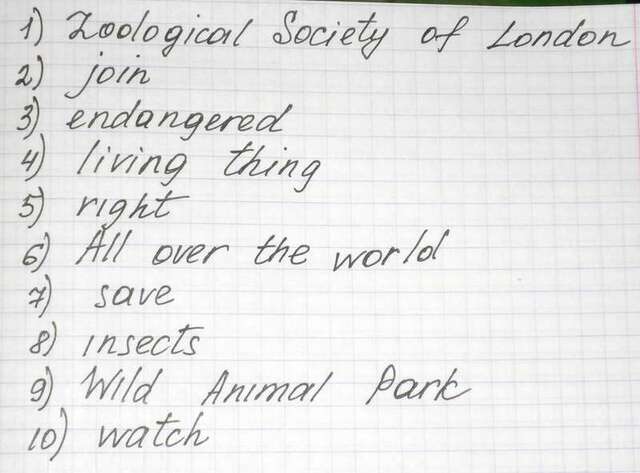 1) Zoological Society of London
2) join
3) endangered
4) living thing
5) right
6) All over the world
7) save
8) insects
9) Wild Animal Park
10) watch